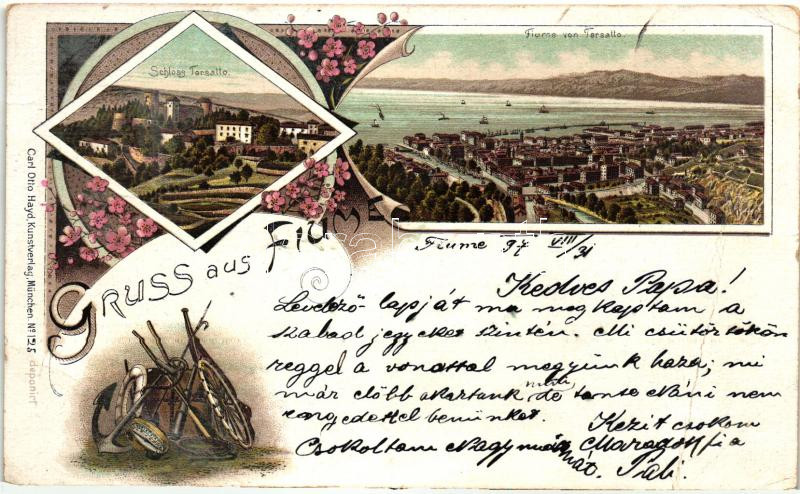 Schloss Tersatto.
Fiume von Tersatto.
GRUSS aus FIUME
Carl Otto Hayd, Kunstverlag, München. No
deponirt
Fiume 97 VIII/31
Kedves Papa!
Levelező-lapját ma megkaptam a
szabad jegyeket szintén. Mi csütörtökön
reggel a vonattal megyünk haza; mi
már előbb akartunk de néni nem
engedett el bennünket. Kezit csokolom
Csokoltam Nagymámát. Maragos fia
Pali.